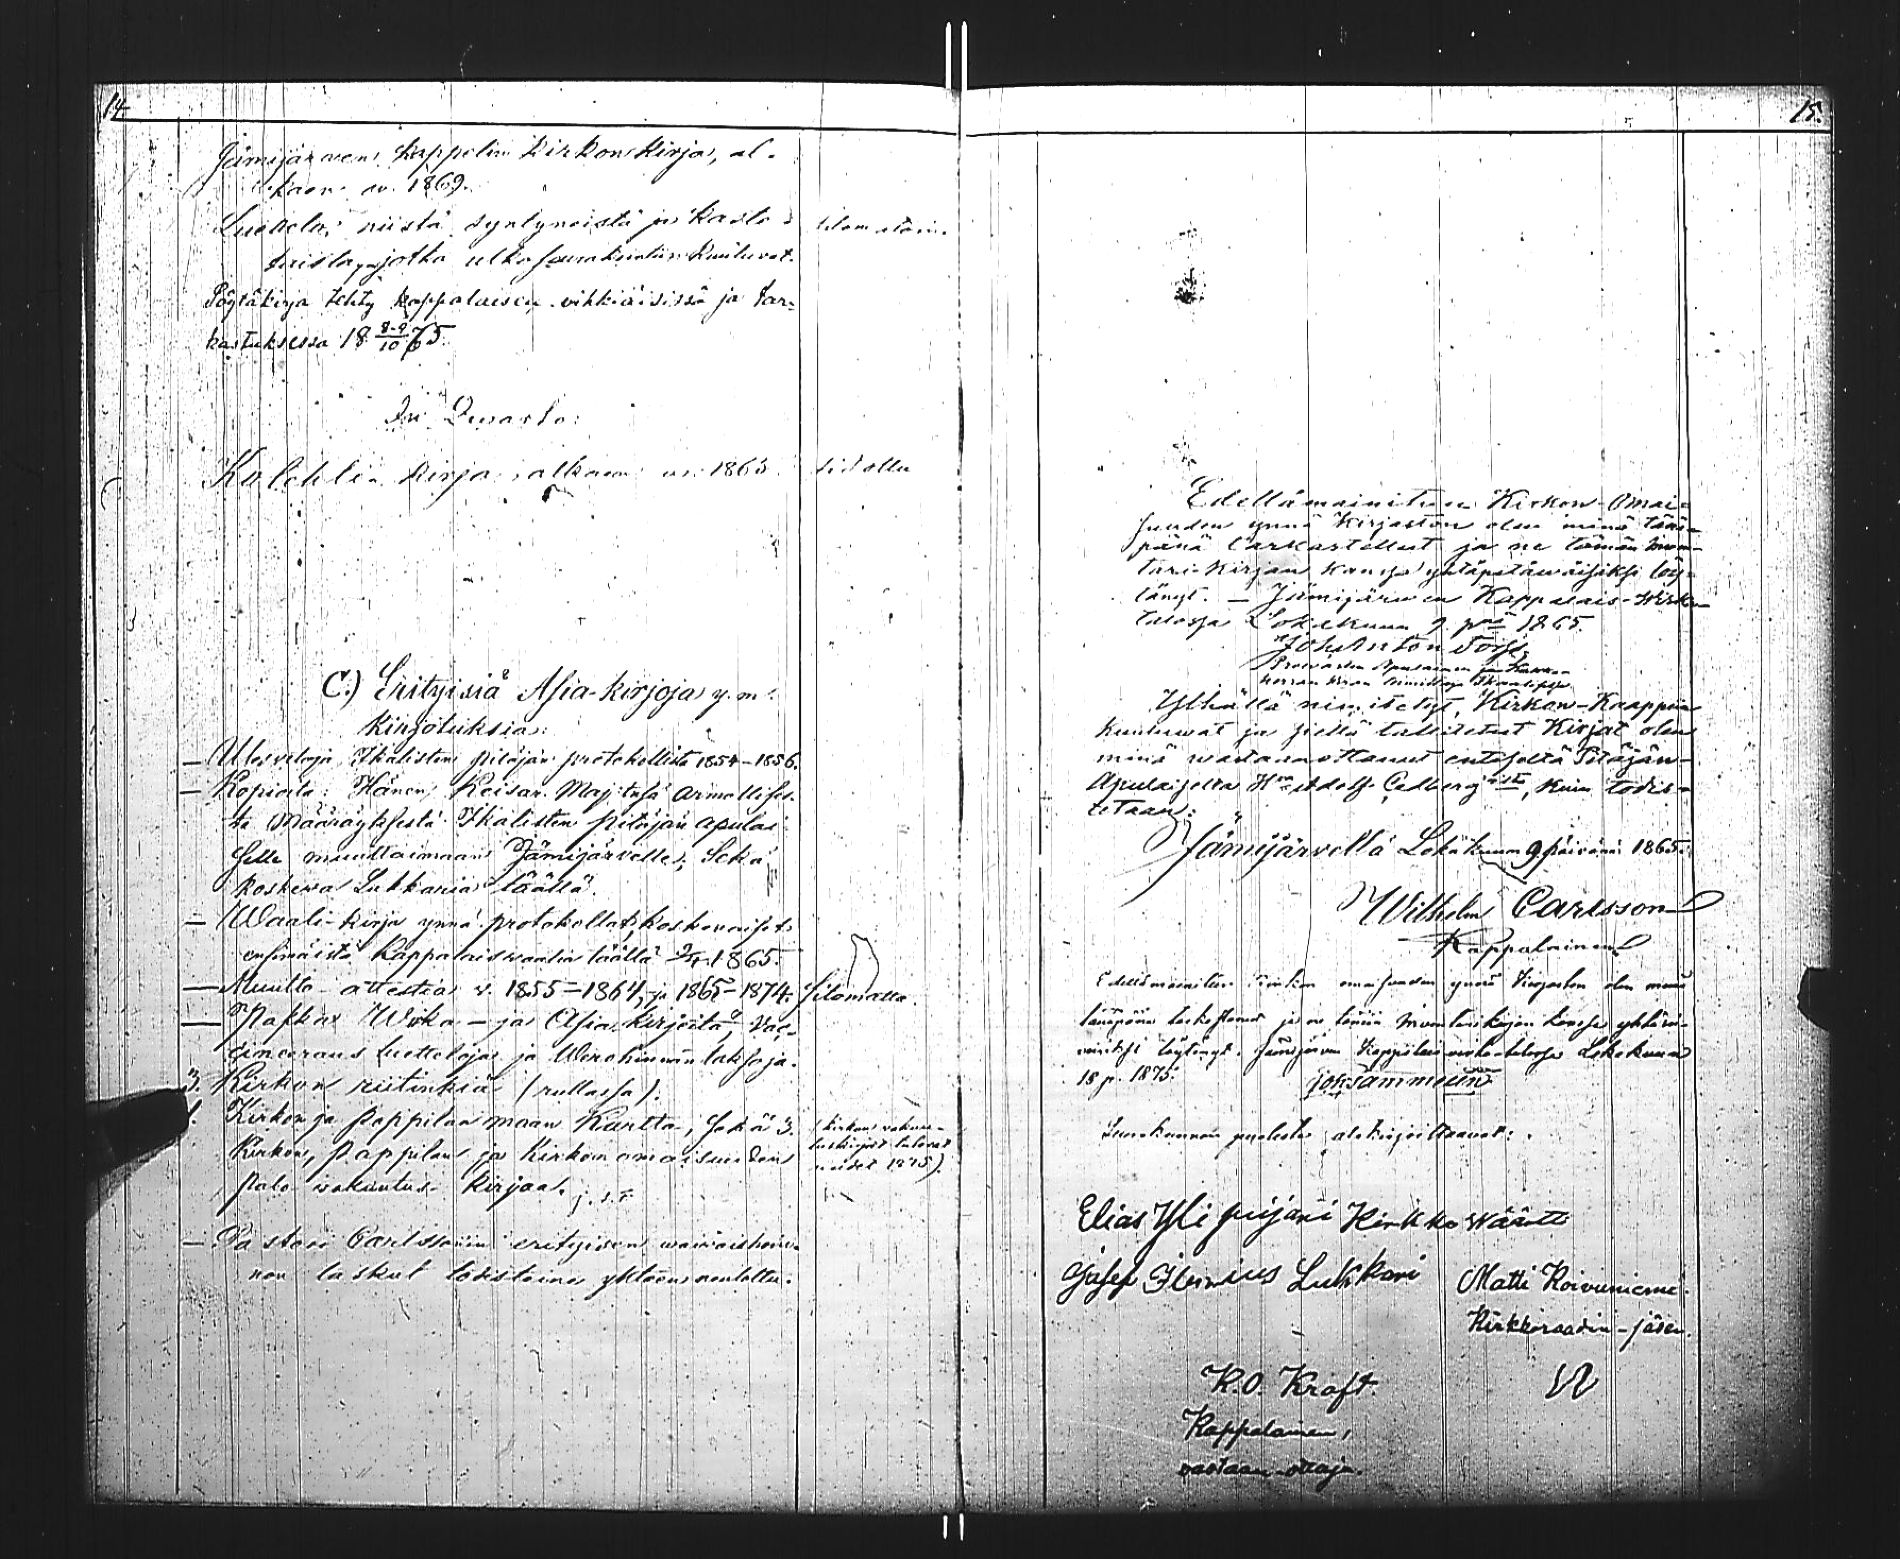 14
Jämijärven kappelin Kirkonkirja, al-
kaen w. 1869.
Luettelo niistä syntyneistä ja kaste-
tuista, jotka ulkoseurakuntiin kuuluvat.
sitomatoin.
Pöytäkirja tehty kappalaisen vihkiäisissä ja tar-
kastuksessa 18 8-9/10 65.
In Quarto:
Kolehti-kirja alkaen w. 1865.
sidottu
C.) Erityisiä Asia-kirjoja y. m.
kirjoituksia:
— Ulosvetoja Ikalisten pitäjän protokollista 1854-1856.
— Kopioita: Hänen Keisar. Maj:tinsa armollises-
ta Määräyksestä Ikalisten pitäjän apulai-
selle muuttaimaan Jämijärvelle, Sekä
koskeva Lukkaria täällä.
— Waali-kirja ynnä protokollat, koskevaiset
ensimäistä Kappalaiswaalia täällä 1865.
— Muutto-attestia v. 1855-1864, ja 1865-1874.
sitomatta.
— Papka Wirka- ja Asia-kirjoita,
luetteloja ja
3. Kirkon riitinkiä (rullassa).
1. Kirkon ja Pappilan maan Kartta, sekä 3.
Kirkon, Pappilan ja Kirkon omaisuuden
Palo-wakuutus-kirjaa. j. s. t.
(kirkon vakuu-
tuskirjat tulevat
uudet 1875).
— Pastori Carlssonin erityisen waivaishoin-
non laskut toistaina yhteen neulottu.
15.
Edellämainitun Kirkon-Omai-
suuden ynnä Kirjaston olen minä tänä-
pänä tarkastellut ja ne tämän Inven-
tari-Kirjan kanssa yhtäpitäwäisiksi löy-
tänyt. — Jämijärwen Kappalais-Wirka-
talossa Lokakuun 9. p:nä 1865.
Joh. Anton
Ylhällä nimitetyt, Kirkon-Kaappiin
kuuluwat ja siellä talletetut Kirjat olen
minä wastaanottanut entiseltä Pitäjän-
Apulaiselta H:ra Adolf Cedberg'iltä, kuin todis-
tetaan:
Jämijärvellä Lokakuun 9 päivänä 1865.
Wilhelm Carlsson
Kappalainen
Edellämainitun Kirkon omaisuuden ynnä Kirjaston olen minä
tänäpänä tarkastanut ja ne tämän Inventarikirjan kanssa yhtäpi-
täwäisiksi löytänyt. Jämijärven Kappalais virka-talossa Lokakuun
18 p. 1875.
Seurakunnan puolesta alekirjoittaavat:
Elias Yli pijari Kirkko Wäärtti
Josef Lukkari
Matti Koivuniemi.
Kirkkoraadin-jäsen.
K. O. Kraft.
Kappalainen,
vastaan-ottaja.